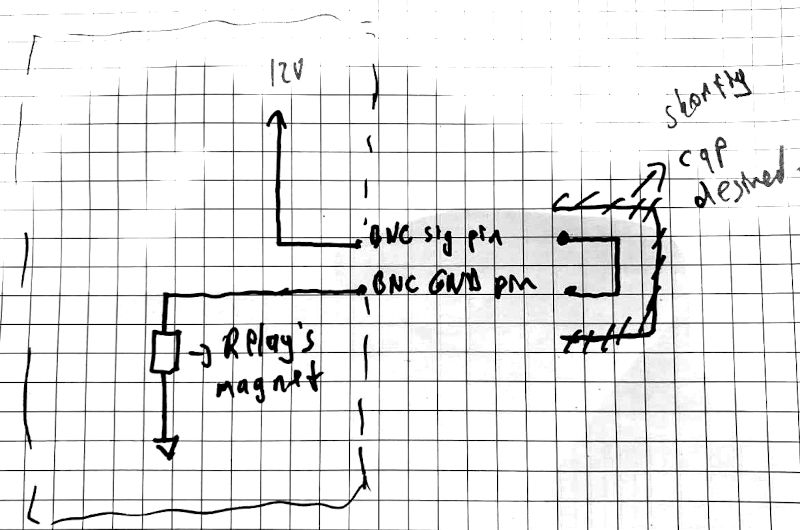 12V
shorting
cap
desired.
BNC sig pin
BNC GND pin
Relay's
magnet